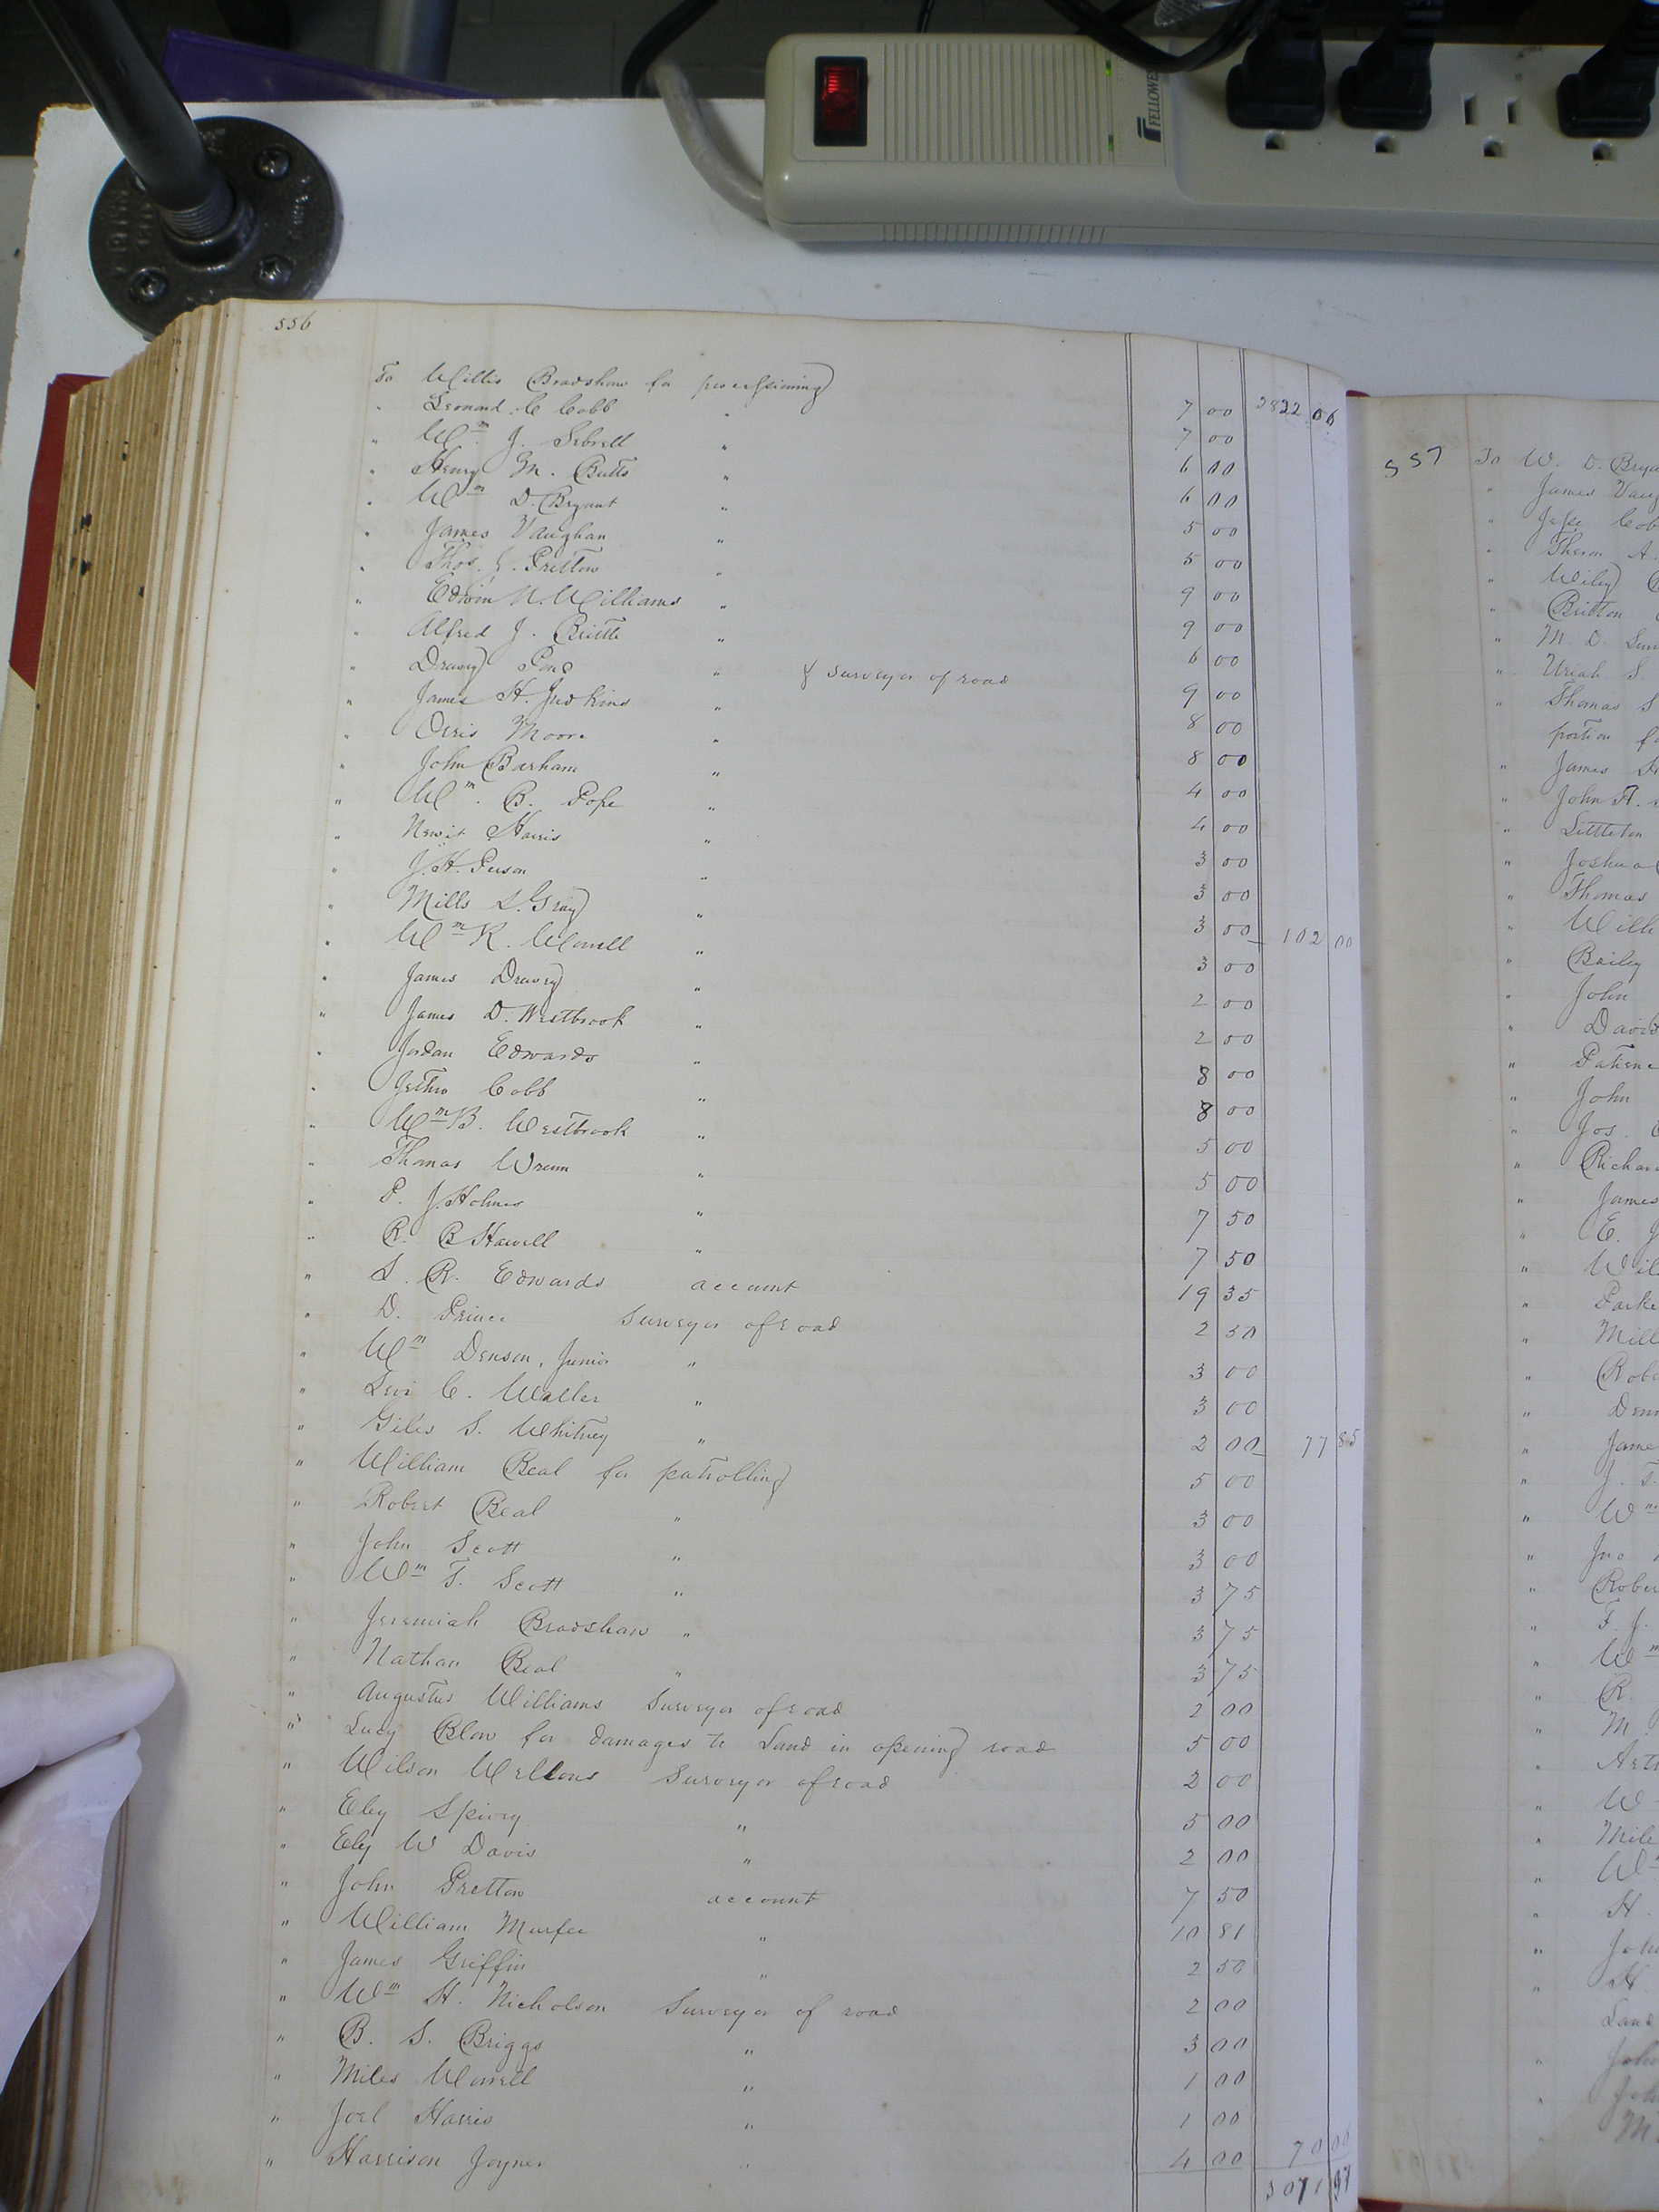 FELLOWES
556
To Willis Bradshaw for processioning 7 00 2822.06
" Leonard C Cobb " 7 00
" Wm J. Sebrell " 6 00
" Henry M. Butts " 6 00
" Wm D. Bryant " 5 00
" James Vaughan " 5 00
" Thos. J. Pretlow " 9 00
" Edwin N. Williams " 9 00
" Alfred J. Britte " 6 00
" Drewry Pond " & surveyor of road 9 00
" James H. Judkins " 8 00
" Orris Moore " 8 00
" John Barham " 4 00
" Wm. B. Pope " 4 00
" Newit Harris " 3 00
" J. H. Person " 3 00
" Mills L. Gray " 3 00 102 00
" Wm K. Worrell " 3 00
" James Drewry " 2 00
" James D. Westbrook " 2 00
" Jordan Edwards " 8 00
" Jethro Cobb " 8 00
" Wm B. Westbrook " 5 00
" Thomas Wrenn " 5 00
" P. J. Holmes " 7 50
" R. B Harrell " 7 50
" S. R. Edwards account 19 35
" D. Prince Surveyor of road 2 50
" Wm Denson, Junior " 3 00
" Levi C. Waller " 3 00
" Giles S. Whitney " 2 00 77 85
" William Beal for patrolling 5 00
" Robert Beal " 3 00
" John Scott " 3 00
" Wm T. Scott " 3 75
" Jeremiah Bradshaw " 3 75
" Nathan Beal " 3 75
" Augustus Williams Surveyor of road 2 00
" Lucy Blow for damages to Land in opening road 5 00
" Wilson Wellons Surveyor of road 2 00
" Eley Spivey " 5 00
" Eley W Davis " 2 00
" John Pretlow account 7 50
" William Murfee " 10 81
" James Griffin " 2 50
" Wm H. Nicholson Surveyor of road 2 00
" B. S. Briggs " 3 00
" Miles Worrell " 1 00
" Joel Harris " 1 00
" Harrison Joyner " 4 00 70 06
3071 97
557 To W. D. Brya
" James Vaug
" Jesse Cob
" Theron A.
" Wiley
" Britton
" M. D.
" Uriah S.
" Thomas S
portion fo
" James
" John A.
" Littleton
" Joshua
" Thomas
" Will
" Bailey
" John
" David
" Patienc
" John
" Jos.
" Richar
" James
" E. J
" Wil
" Parke
" Mill
" Robe
" Denn
" Jame
" J. T.
" Wm
" Jno
" Rober
" F. J.
" Wm
" R.
" M.
" Arth
" W
" Mile
" Wm
" H.
" John
" H.
Land
" John
" John
" M